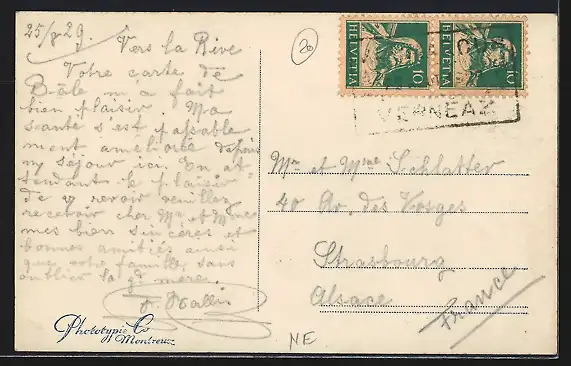 25/8 29.
Vers la Rive
Votre carte de
Bâle m'a fait
bien plaisir. Ma
santé s'est passable
ment améliorée depuis
my séjour ici. En at
tendant le plaisir
de v revoir veuillez
recevoir cher Mr et Mme
mes bien sincères et
bonnes amitiés ainsi
que votre famille, sans
oublier la gd mère.
Phototypie Co
Montreux
20
HELVETIA 10
HELVETIA 10
VERNEAZ
Mr et Mme Schlatter
40 Av. des Vosges
Strasbourg
Alsace
France
NE